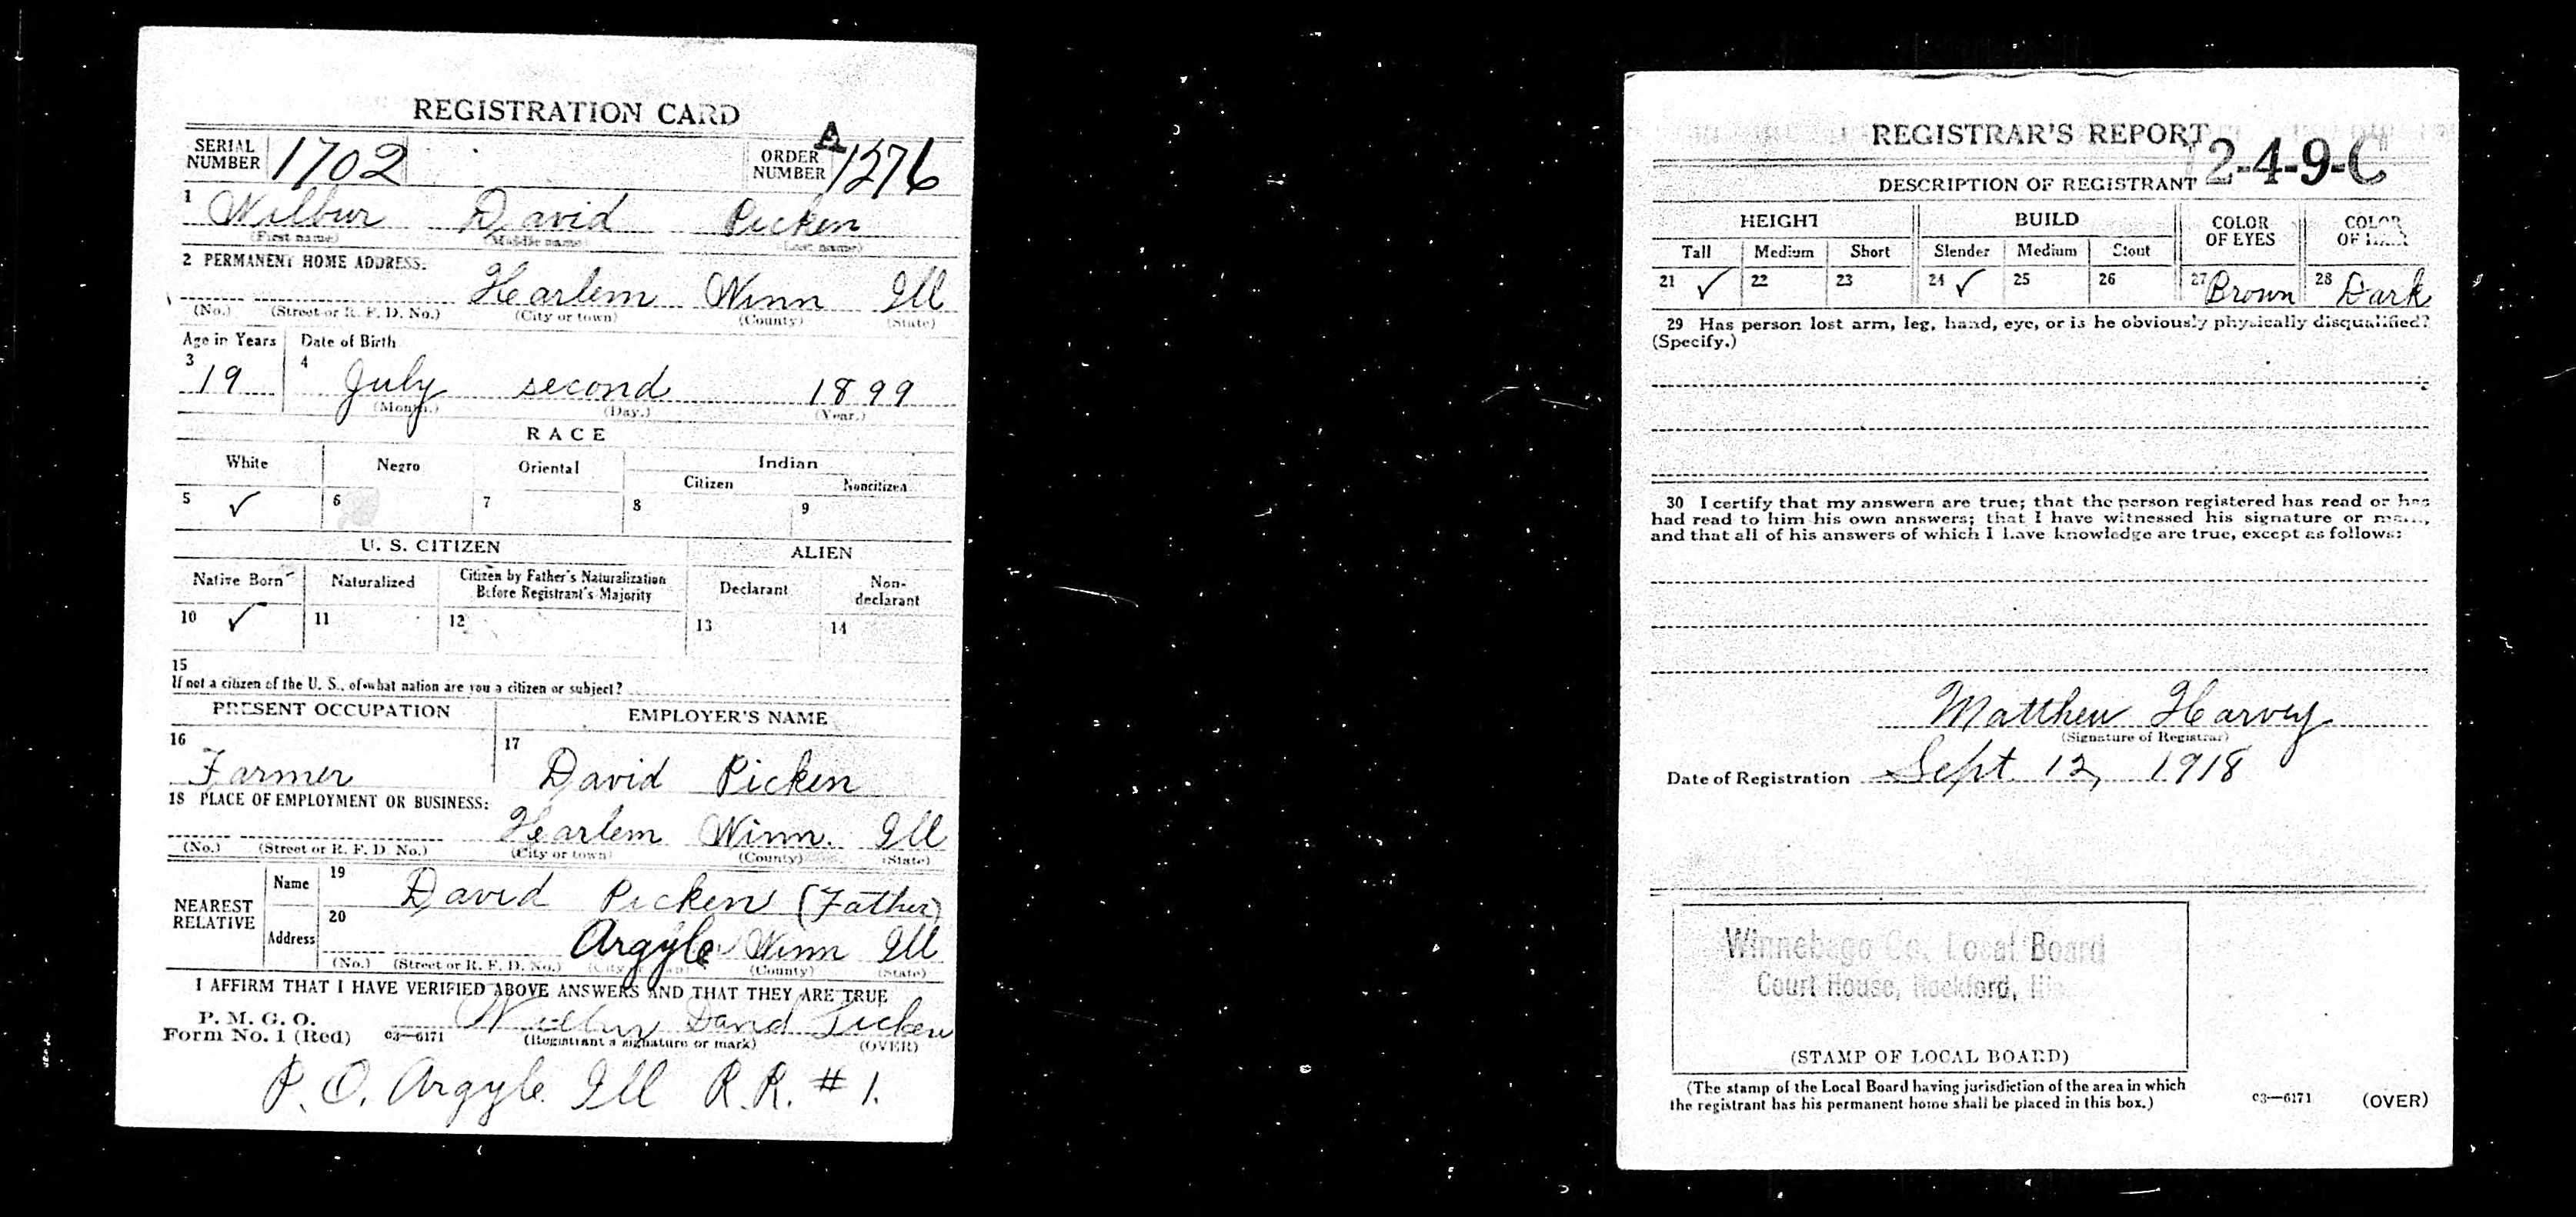 REGISTRATION CARD
SERIAL NUMBER 1702 ORDER NUMBER A 1276
1 Wilbur David Picken
(First name) (Middle name) (Last name)
2 PERMANENT HOME ADDRESS:
Harlem Winn Ill
(No.) (Street or R. F. D. No.) (City or town) (County) (State)
Age in Years Date of Birth
3 19 4 July second 1899
(Month.) (Day.) (Year.)
RACE
White Negro Oriental Indian
Citizen Noncitizen
5 ✓ 6 7 8 9
U. S. CITIZEN ALIEN
Native Born Naturalized Citizen by Father's Naturalization Before Registrant's Majority Declarant Non-declarant
10 ✓ 11 12 13 14
15
If not a citizen of the U. S., of what nation are you a citizen or subject?
PRESENT OCCUPATION EMPLOYER'S NAME
16 Farmer 17 David Picken
18 PLACE OF EMPLOYMENT OR BUSINESS:
Harlem Winn. Ill
(No.) (Street or R. F. D. No.) (City or town) (County) (State)
NEAREST RELATIVE
Name 19 David Picken (Father)
Address 20 Argyle Winn Ill
(No.) (Street or R. F. D. No.) (City or town) (County) (State)
I AFFIRM THAT I HAVE VERIFIED ABOVE ANSWERS AND THAT THEY ARE TRUE
P. M. G. O.
Form No. 1 (Red) 03—6171 Wilbur David Picken
(Registrant's signature or mark) (OVER)
P. O. Argyle Ill R.R. # 1.
REGISTRAR'S REPORT
12-4-9-C
DESCRIPTION OF REGISTRANT
HEIGHT BUILD COLOR OF EYES COLOR OF HAIR
Tall Medium Short Slender Medium Stout
21 ✓ 22 23 24 ✓ 25 26 27 Brown 28 Dark
29 Has person lost arm, leg, hand, eye, or is he obviously physically disqualified?
(Specify.)
30 I certify that my answers are true; that the person registered has read or has
had read to him his own answers; that I have witnessed his signature or mark,
and that all of his answers of which I have knowledge are true, except as follows:
Matthew Harvey
(Signature of Registrar)
Date of Registration Sept. 12, 1918
Winnebago Co. Local Board
Court House, Rockford, Ills.
(STAMP OF LOCAL BOARD)
(The stamp of the Local Board having jurisdiction of the area in which
the registrant has his permanent home shall be placed in this box.)
03—6171 (OVER)